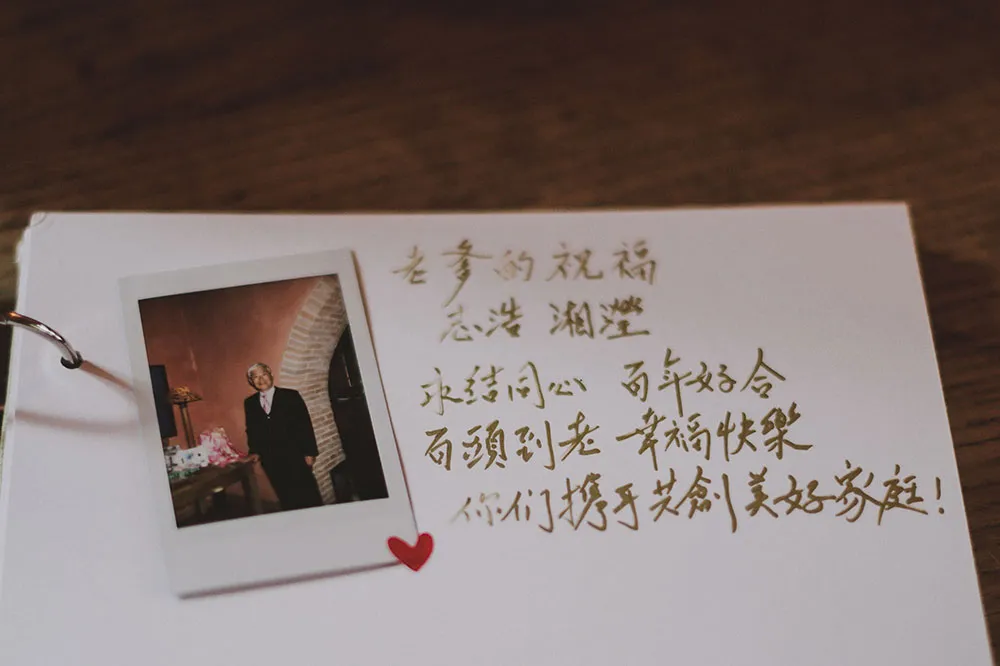 老爹的祝福
志浩 湘瀅
永结同心 百年好合
百頭到老 幸福快樂
你们攜手共創美好家庭!